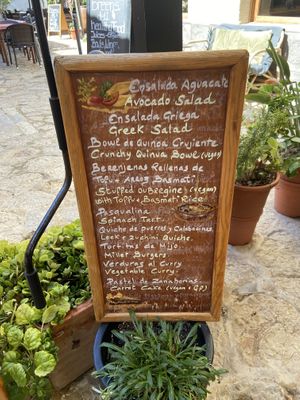 Ensalada Aguacate
Avocado Salad
Ensalada Griega
Greek Salad
Bowl de Quinoa Crujiente
Crunchy Quinua Bowl (vegan)
Berenjenas Rellenas de
Tofu + Arroz Basmati
Stuffed Oubregine (vegan)
with Tofu + Basmati Rice
Pasqualina
Spinach Tart
Quiche de puerros y Calabacines
Leek + Zuchini Quiche
Tortitas de Mijo
Millet Burgers
Verduras al Curry
Vegetable Curry
Pastel de Zanahorias
Carrot Cake (vegan + GF)